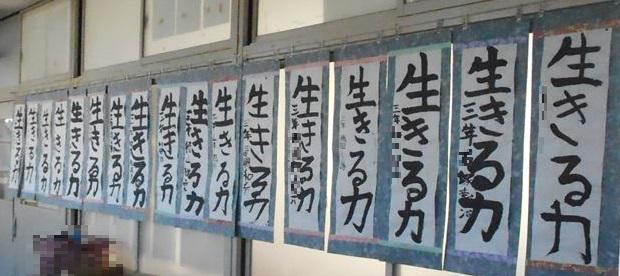 生きる力
生きる力
三年
生きる力
三年
生きる力
三年
生きる力
三年
生きる力
三年
生きる力
三年
生きる力
生きる力
生きる力
生きる力
生きる力
生きる力
生きる力
生きる力
生きる力
生きる力